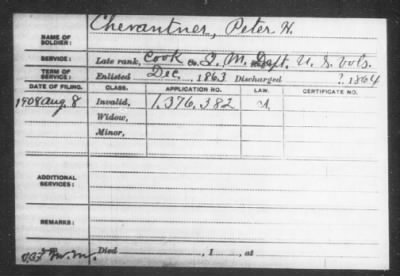 NAME OF SOLDIER: Chevantner, Peter H.
SERVICE: Late rank, Cook Co. Q. M. Dept, U. S. Vols.
TERM OF SERVICE: Enlisted Dec, 1863 Discharged ?, 1864
DATE OF FILING. CLASS. APPLICATION NO. LAW. CERTIFICATE NO.
1908 Aug. 8 Invalid, 1.376,382
Widow,
Minor,
ADDITIONAL SERVICES:
REMARKS:
Died , 1 , at